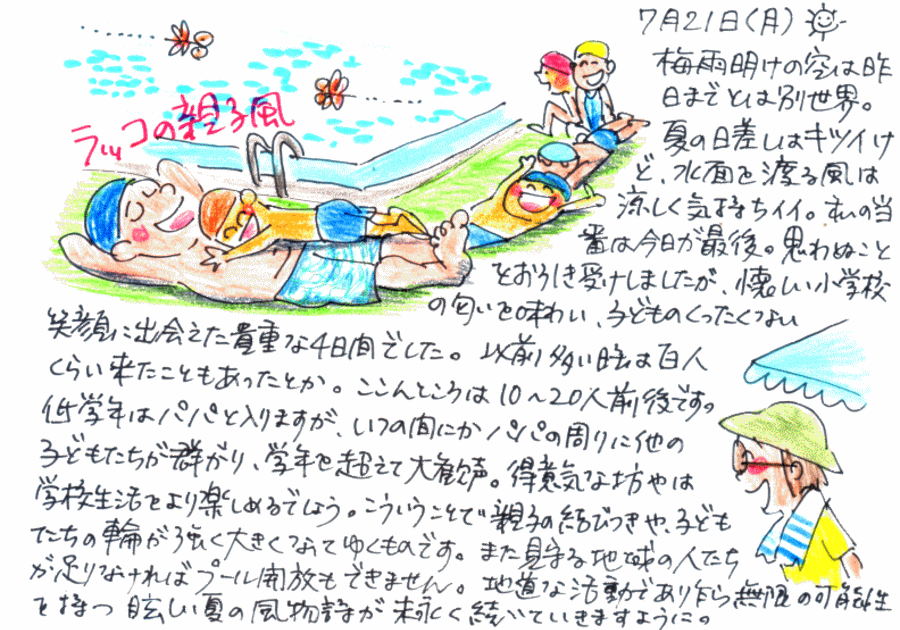 7月21日(月)
ラッコの親子風
梅雨明けの空は昨
日までとは別世界。
夏の日差しはキツイけ
ど、水面を渡る風は
涼しく気持ちイイ。私の当
番は今日が最後。思わぬこと
とおろうき受けしましたが、懐しい小学校
の匂いを味わい、子どものくったくない
笑顔に出会えた貴重な4日間でした。以前多い時は百人
くらい来たこともあったとか。ここんところは10~20人前後です。
低学年はパパと入りますが、いつの間にかパパの周りに他の
子どもたちが群がり、学年を超えて大歓声。得意気な坊やは
学校生活をより楽しめるでしょう。こういうことで親子の結びつきや、子ども
たちの輪が強く大きくなってゆくものです。また見守る地域の人たち
が足りなければプール開放もできません。地道な活動でありながら無限の可能性
を持つ眩しい夏の風物詩が末永く続いていきますように。